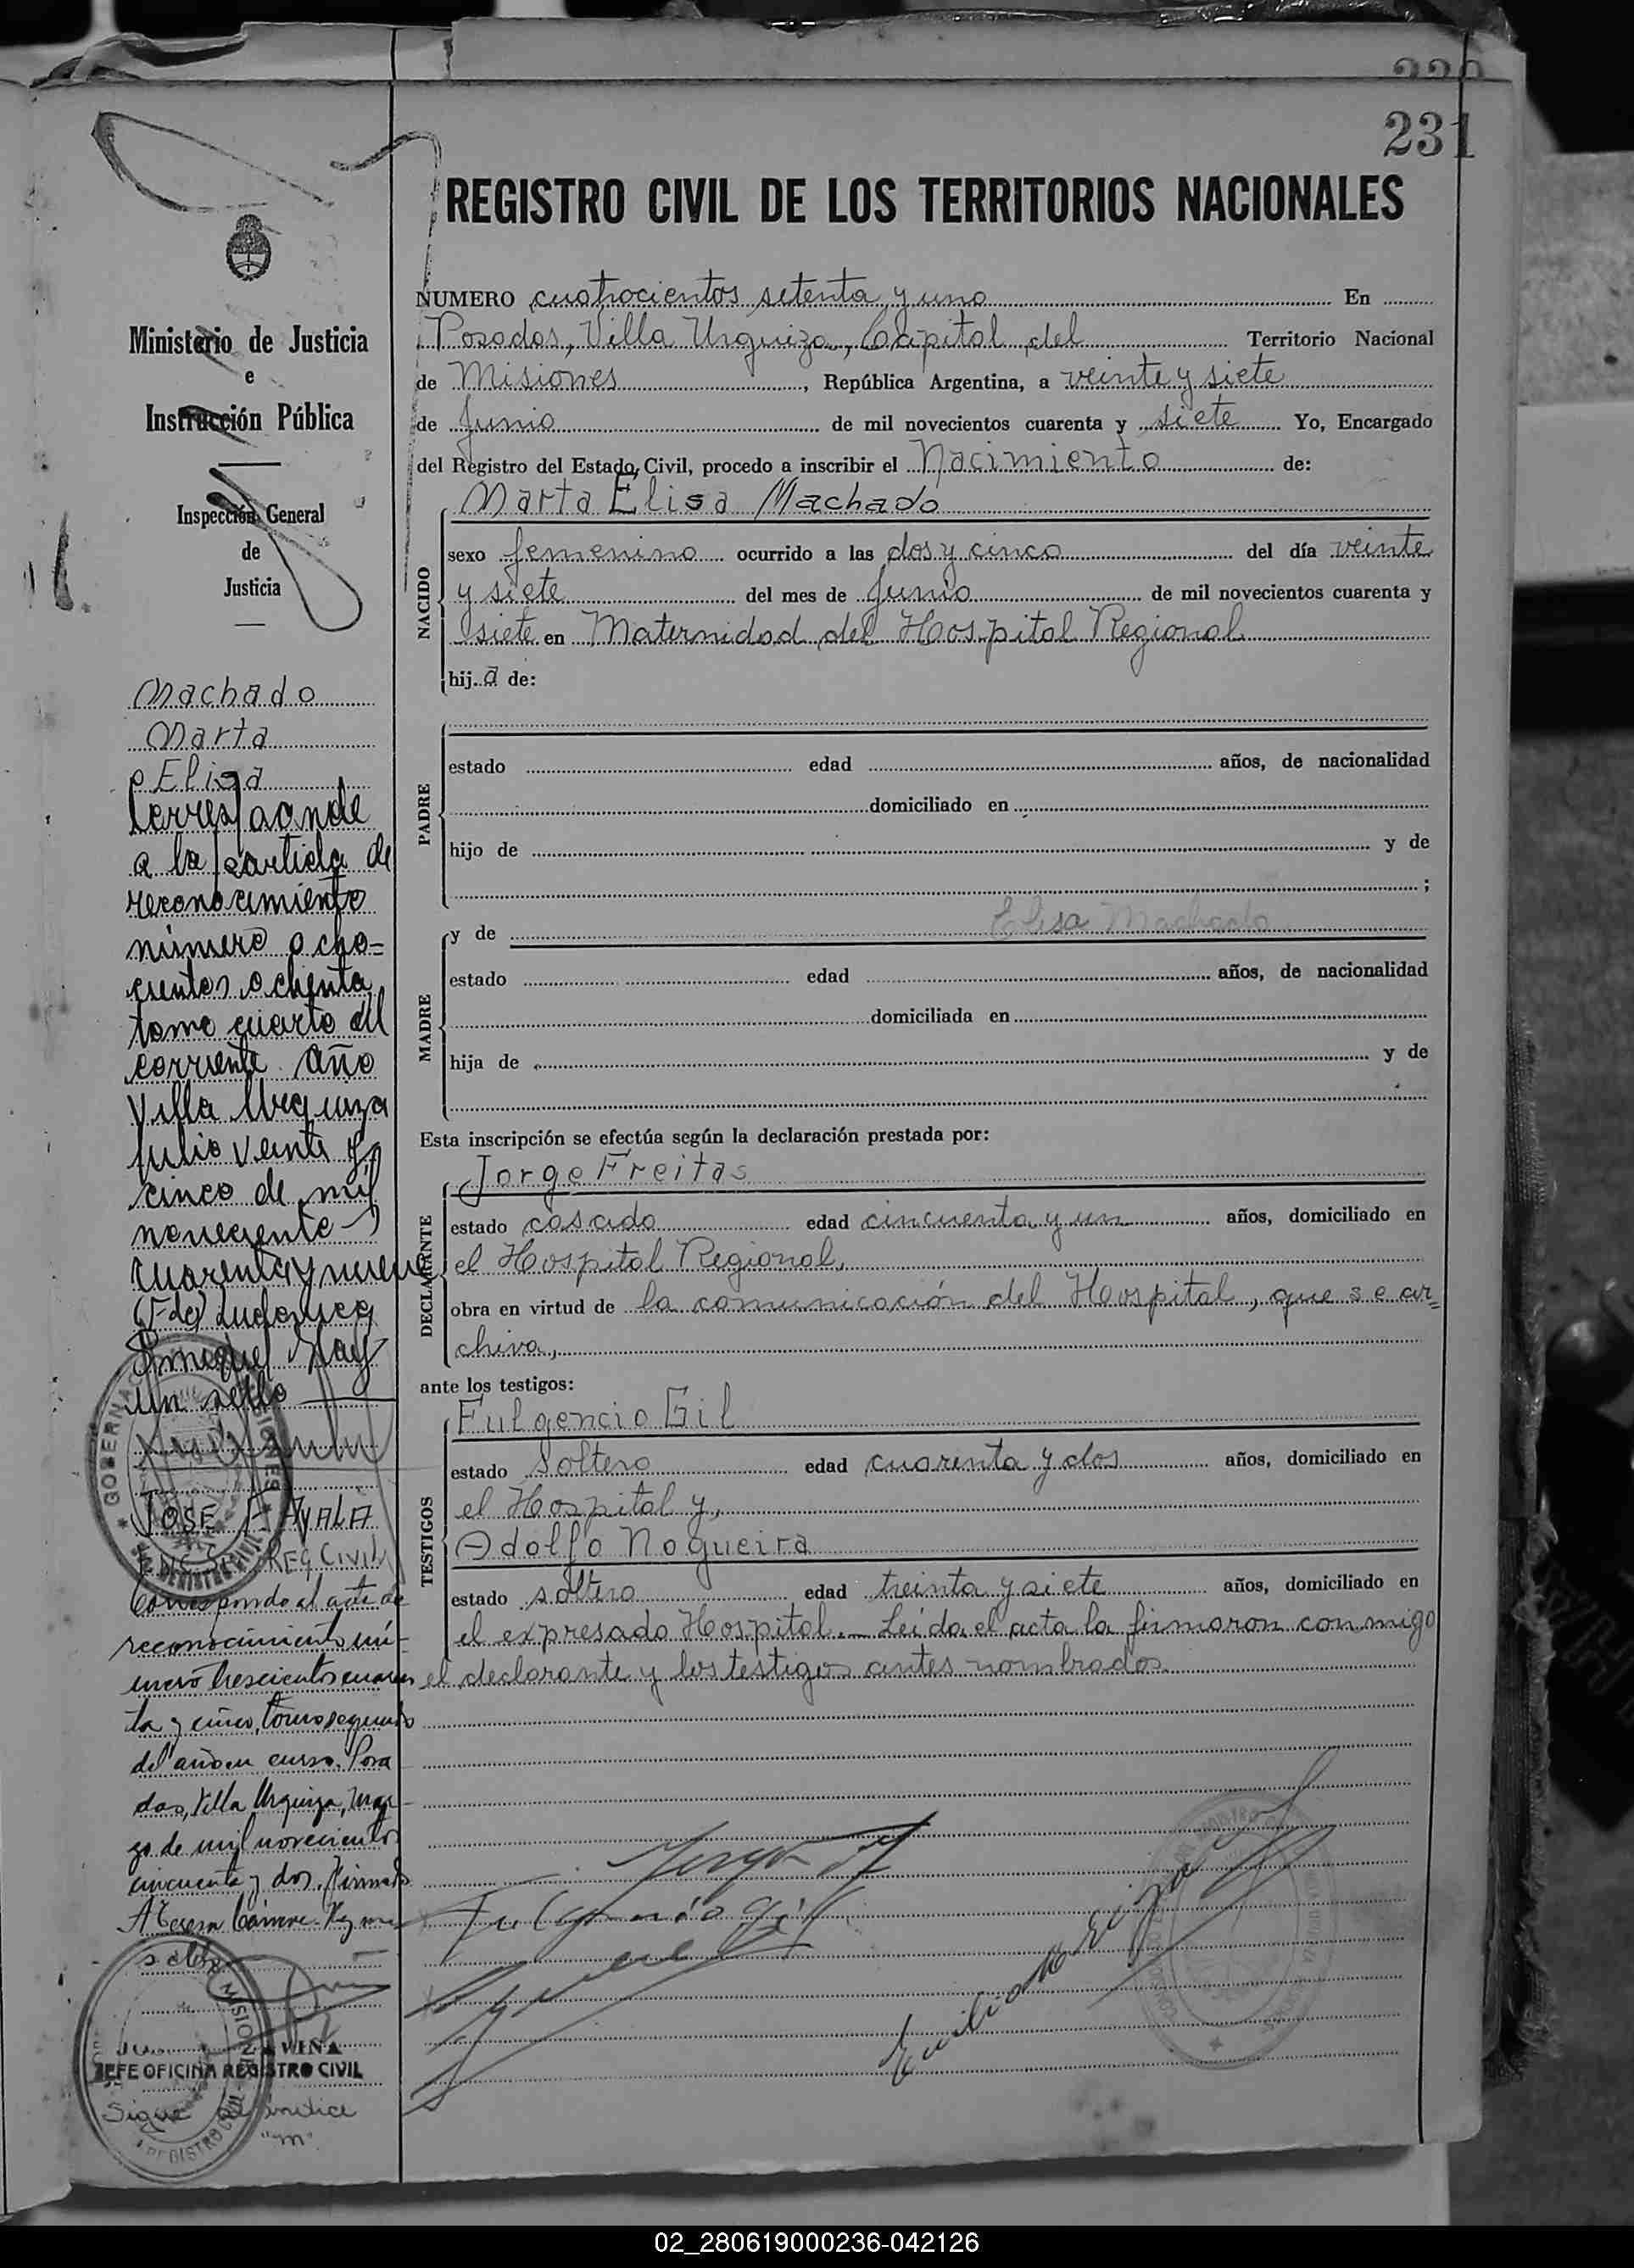 231
REGISTRO CIVIL DE LOS TERRITORIOS NACIONALES
Ministerio de Justicia
e
Instrucción Pública
Inspección General
de
Justicia
Machado
Marta
Elisa
Corresponde
a la partida de
reconocimiento
número ocho=
cientos ochenta
tomo cuarto del
corriente año
Villa Urquiza
Julio veinte y
cinco de mil
novecientos
cuarenta y nueve
Hay
un sello
JOSE F. AYALA
ENC. REG CIVIL
Corresponde al acta de
reconocimiento nú-
mero trescientos cuaren
ta y cinco, tomo segundo
del año en curso. Posa
das, Villa Urquiza, mar
zo de mil novecientos
cincuenta y dos. Firmado
Hay un
sello
JEFE OFICINA REGISTRO CIVIL
Sigue al indice
"M"
NUMERO cuatrocientos setenta y uno En
Posadas, Villa Urquiza, Capital del Territorio Nacional
de Misiones, República Argentina, a veinte y siete
de Junio de mil novecientos cuarenta y siete Yo, Encargado
del Registro del Estado Civil, procedo a inscribir el Nacimiento de:
Marta Elisa Machado
NACIDO
sexo femenino ocurrido a las dos y cinco del día veinte
y siete del mes de Junio de mil novecientos cuarenta y
siete en Maternidad del Hospital Regional
hija de:
PADRE
estado edad años, de nacionalidad
domiciliado en
hijo de y de
;
y de Elisa Machado
MADRE
estado edad años, de nacionalidad
domiciliada en
hija de y de
Esta inscripción se efectúa según la declaración prestada por:
Jorge Freitas
DECLARANTE
estado casado edad cincuenta y un años, domiciliado en
el Hospital Regional,
obra en virtud de la comunicación del Hospital, que se ar=
chiva,
ante los testigos:
Fulgencio Gil
TESTIGOS
estado Soltero edad cuarenta y dos años, domiciliado en
el Hospital y,
Adolfo Nogueira
estado soltero edad treinta y siete años, domiciliado en
el expresado Hospital.— Leída el acta la firmaron conmigo
el declarante y los testigos antes nombrados
Fulgencio Gil
02_280619000236-042126